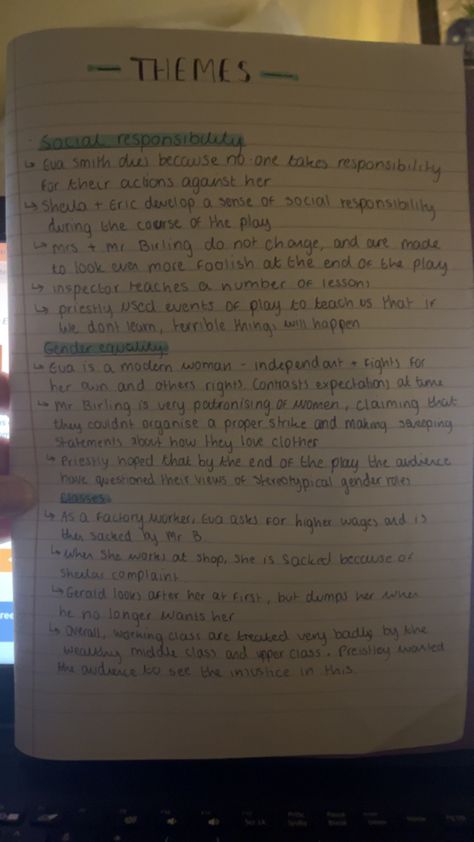 — THEMES —
Social responsibility
↳ Eva Smith dies because no one takes responsibility
for their actions against her
↳ Sheila + Eric develop a sense of social responsibility
during the course of the play
↳ Mrs + Mr Birling do not change, and are made
to look even more foolish at the end of the play
↳ inspector teaches a number of lessons
↳ priestly used events of play to teach us that if
we dont learn, terrible things will happen
Gender equality
↳ Eva is a modern woman - independant + fights for
her own and others rights. Contrasts expectations at time
↳ Mr Birling is very patronising of women, claiming that
they couldnt organise a proper strike and making sweeping
statements about how they love clothes
↳ Priestly hoped that by the end of the play the audience
have questioned their views of stereotypical gender roles
Classes
↳ As a factory worker, Eva asks for higher wages and is
then sacked by Mr B
↳ When she works at shop, she is sacked because of
sheilas complaint
↳ Gerald looks after her at first, but dumps her when
he no longer wants her
↳ Overall, working class are treated very badly by the
wealthy middle class and upper class. Preistley wanted
the audience to see the injustice in this.